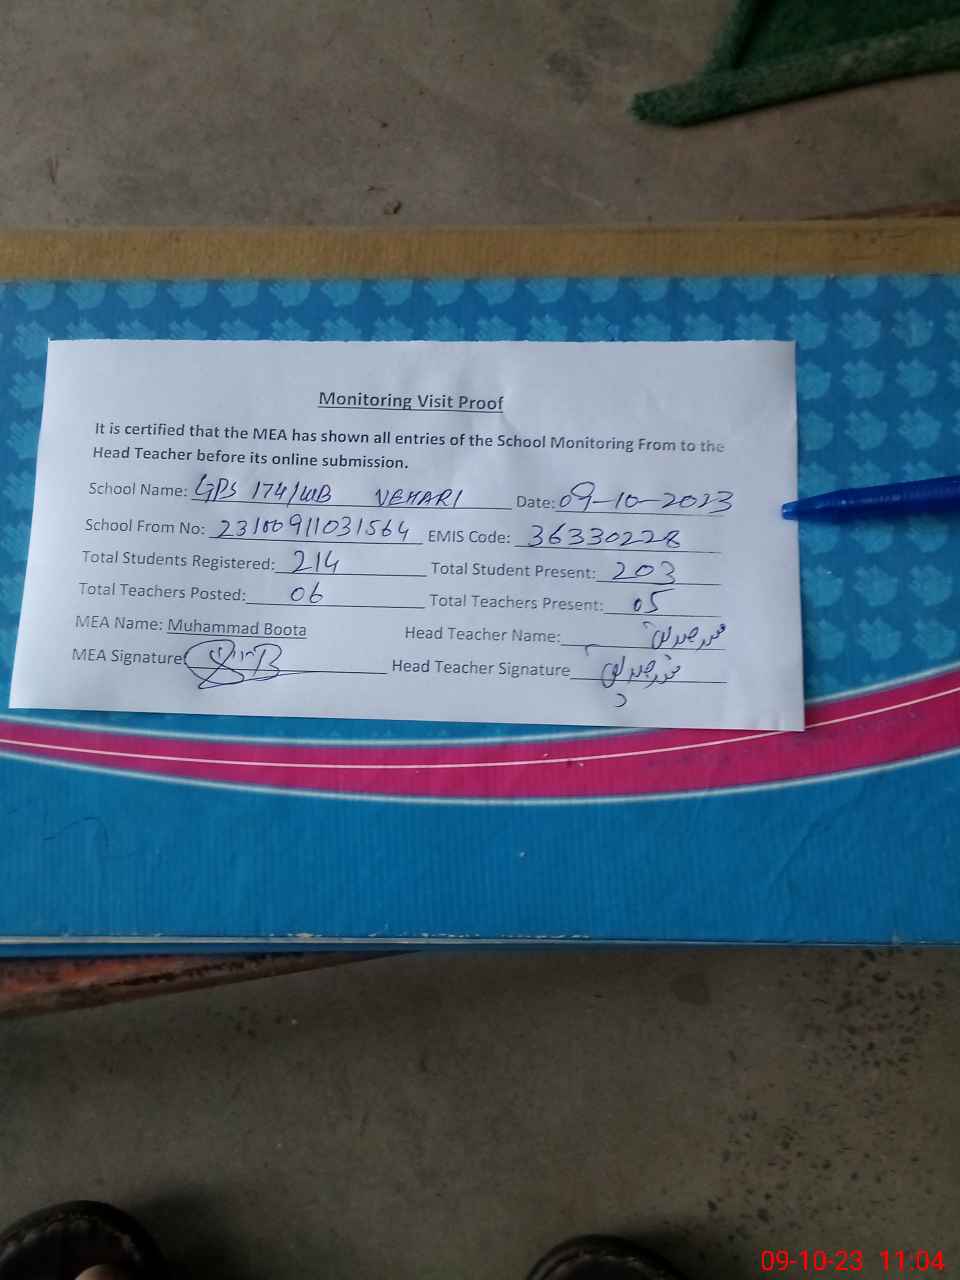 Monitoring Visit Proof
It is certified that the MEA has shown all entries of the School Monitoring From to the
Head Teacher before its online submission.
School Name: GPS 174/WB VEHARI Date: 09-10-2023
School From No: 23100911031564 EMIS Code: 36330228
Total Students Registered: 214 Total Student Present: 203
Total Teachers Posted: 06 Total Teachers Present: 05
MEA Name: Muhammad Boota Head Teacher Name:
MEA Signature Head Teacher Signature
09-10-23 11:04